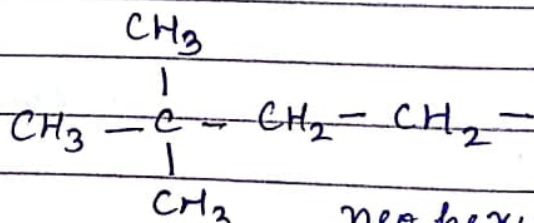 CH3
|
CH3 – C – CH2 – CH2 –
|
CH3
neo